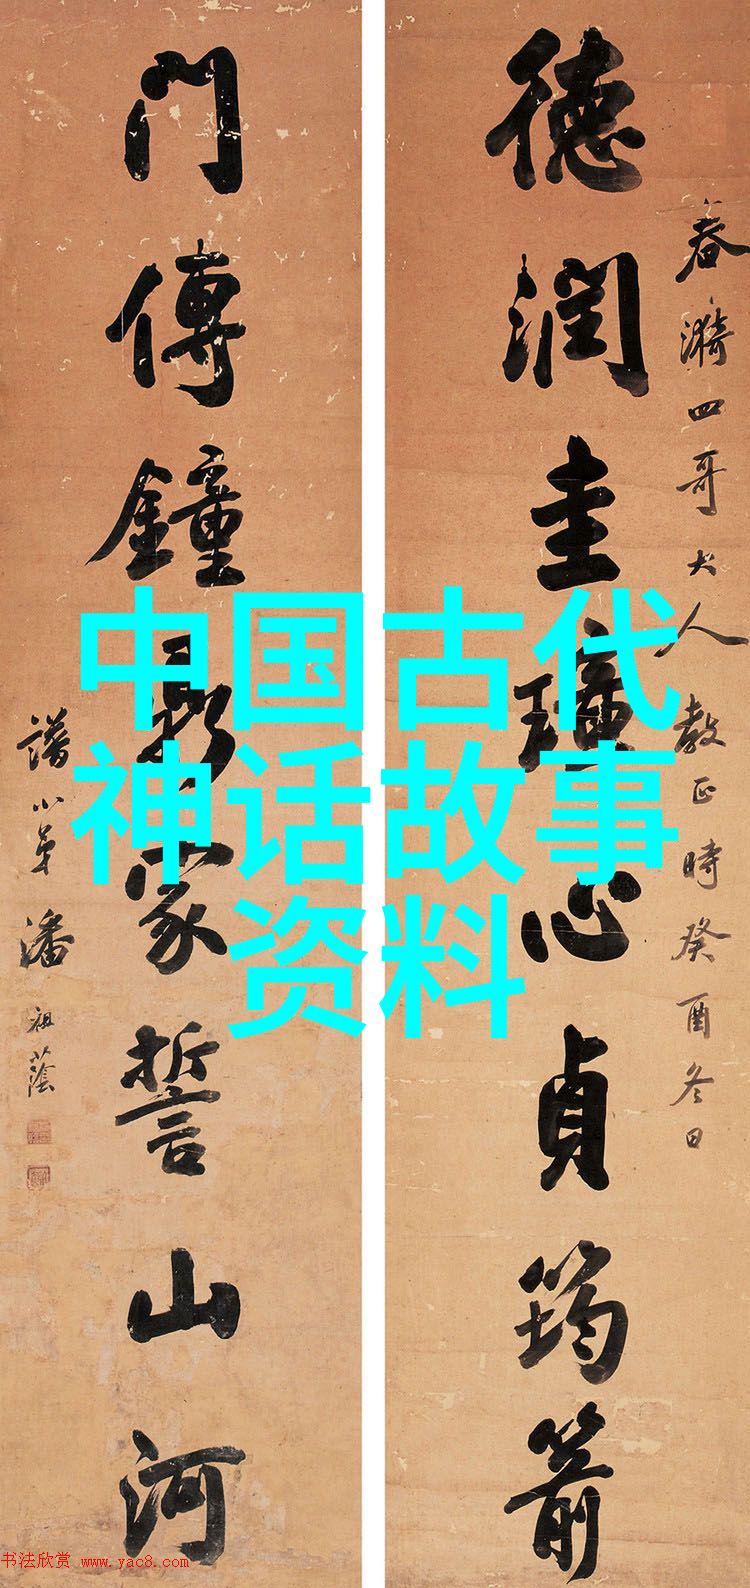 中国古代
神话故事
资料
春漪四哥大人教正時癸酉冬日
德潤圭璋心貞筠箭
門傳鐘鼎家誓山河
譜小弟潘祖蔭
书法欣赏 www.yac8.com